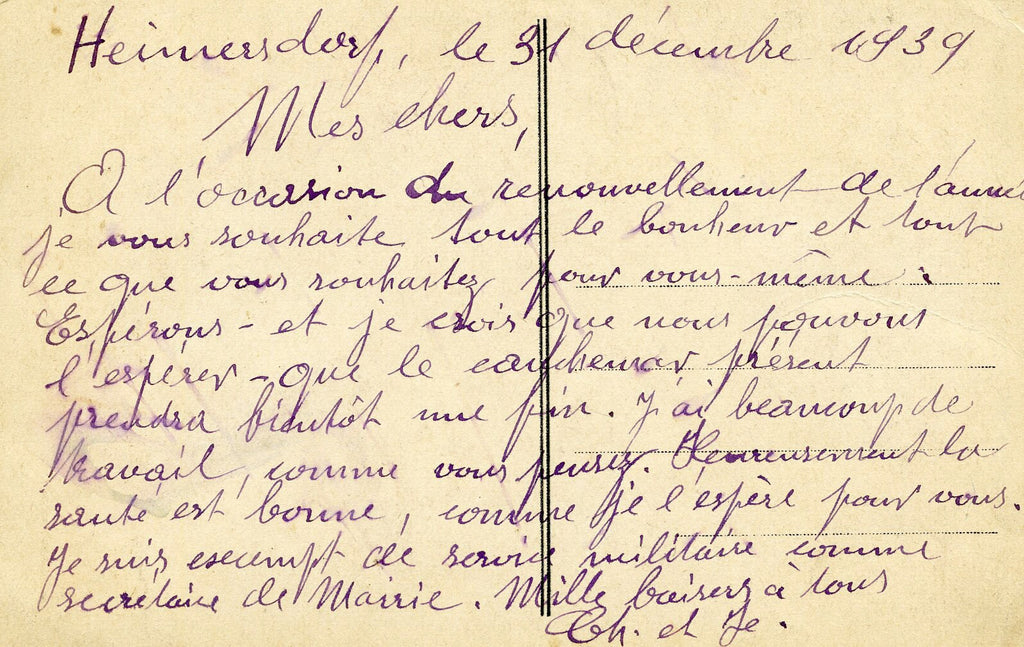 Heimersdorf, le 31 décembre 1939
Mes chers,
A l'occasion du renouvellement de l'année
je vous souhaite tout le bonheur et tout
ce que vous souhaitez pour vous-même :
Espérons - et je crois que nous pouvons
l'espérer - que le cauchemar présent
prendra bientôt une fin. J'ai beaucoup de
travail, comme vous pensez. Heureusement la
santé est bonne, comme je l'espère pour vous.
Je suis exempt de service militaire comme
secrétaire de Mairie. Mille baisers à tous
Th. et Je.